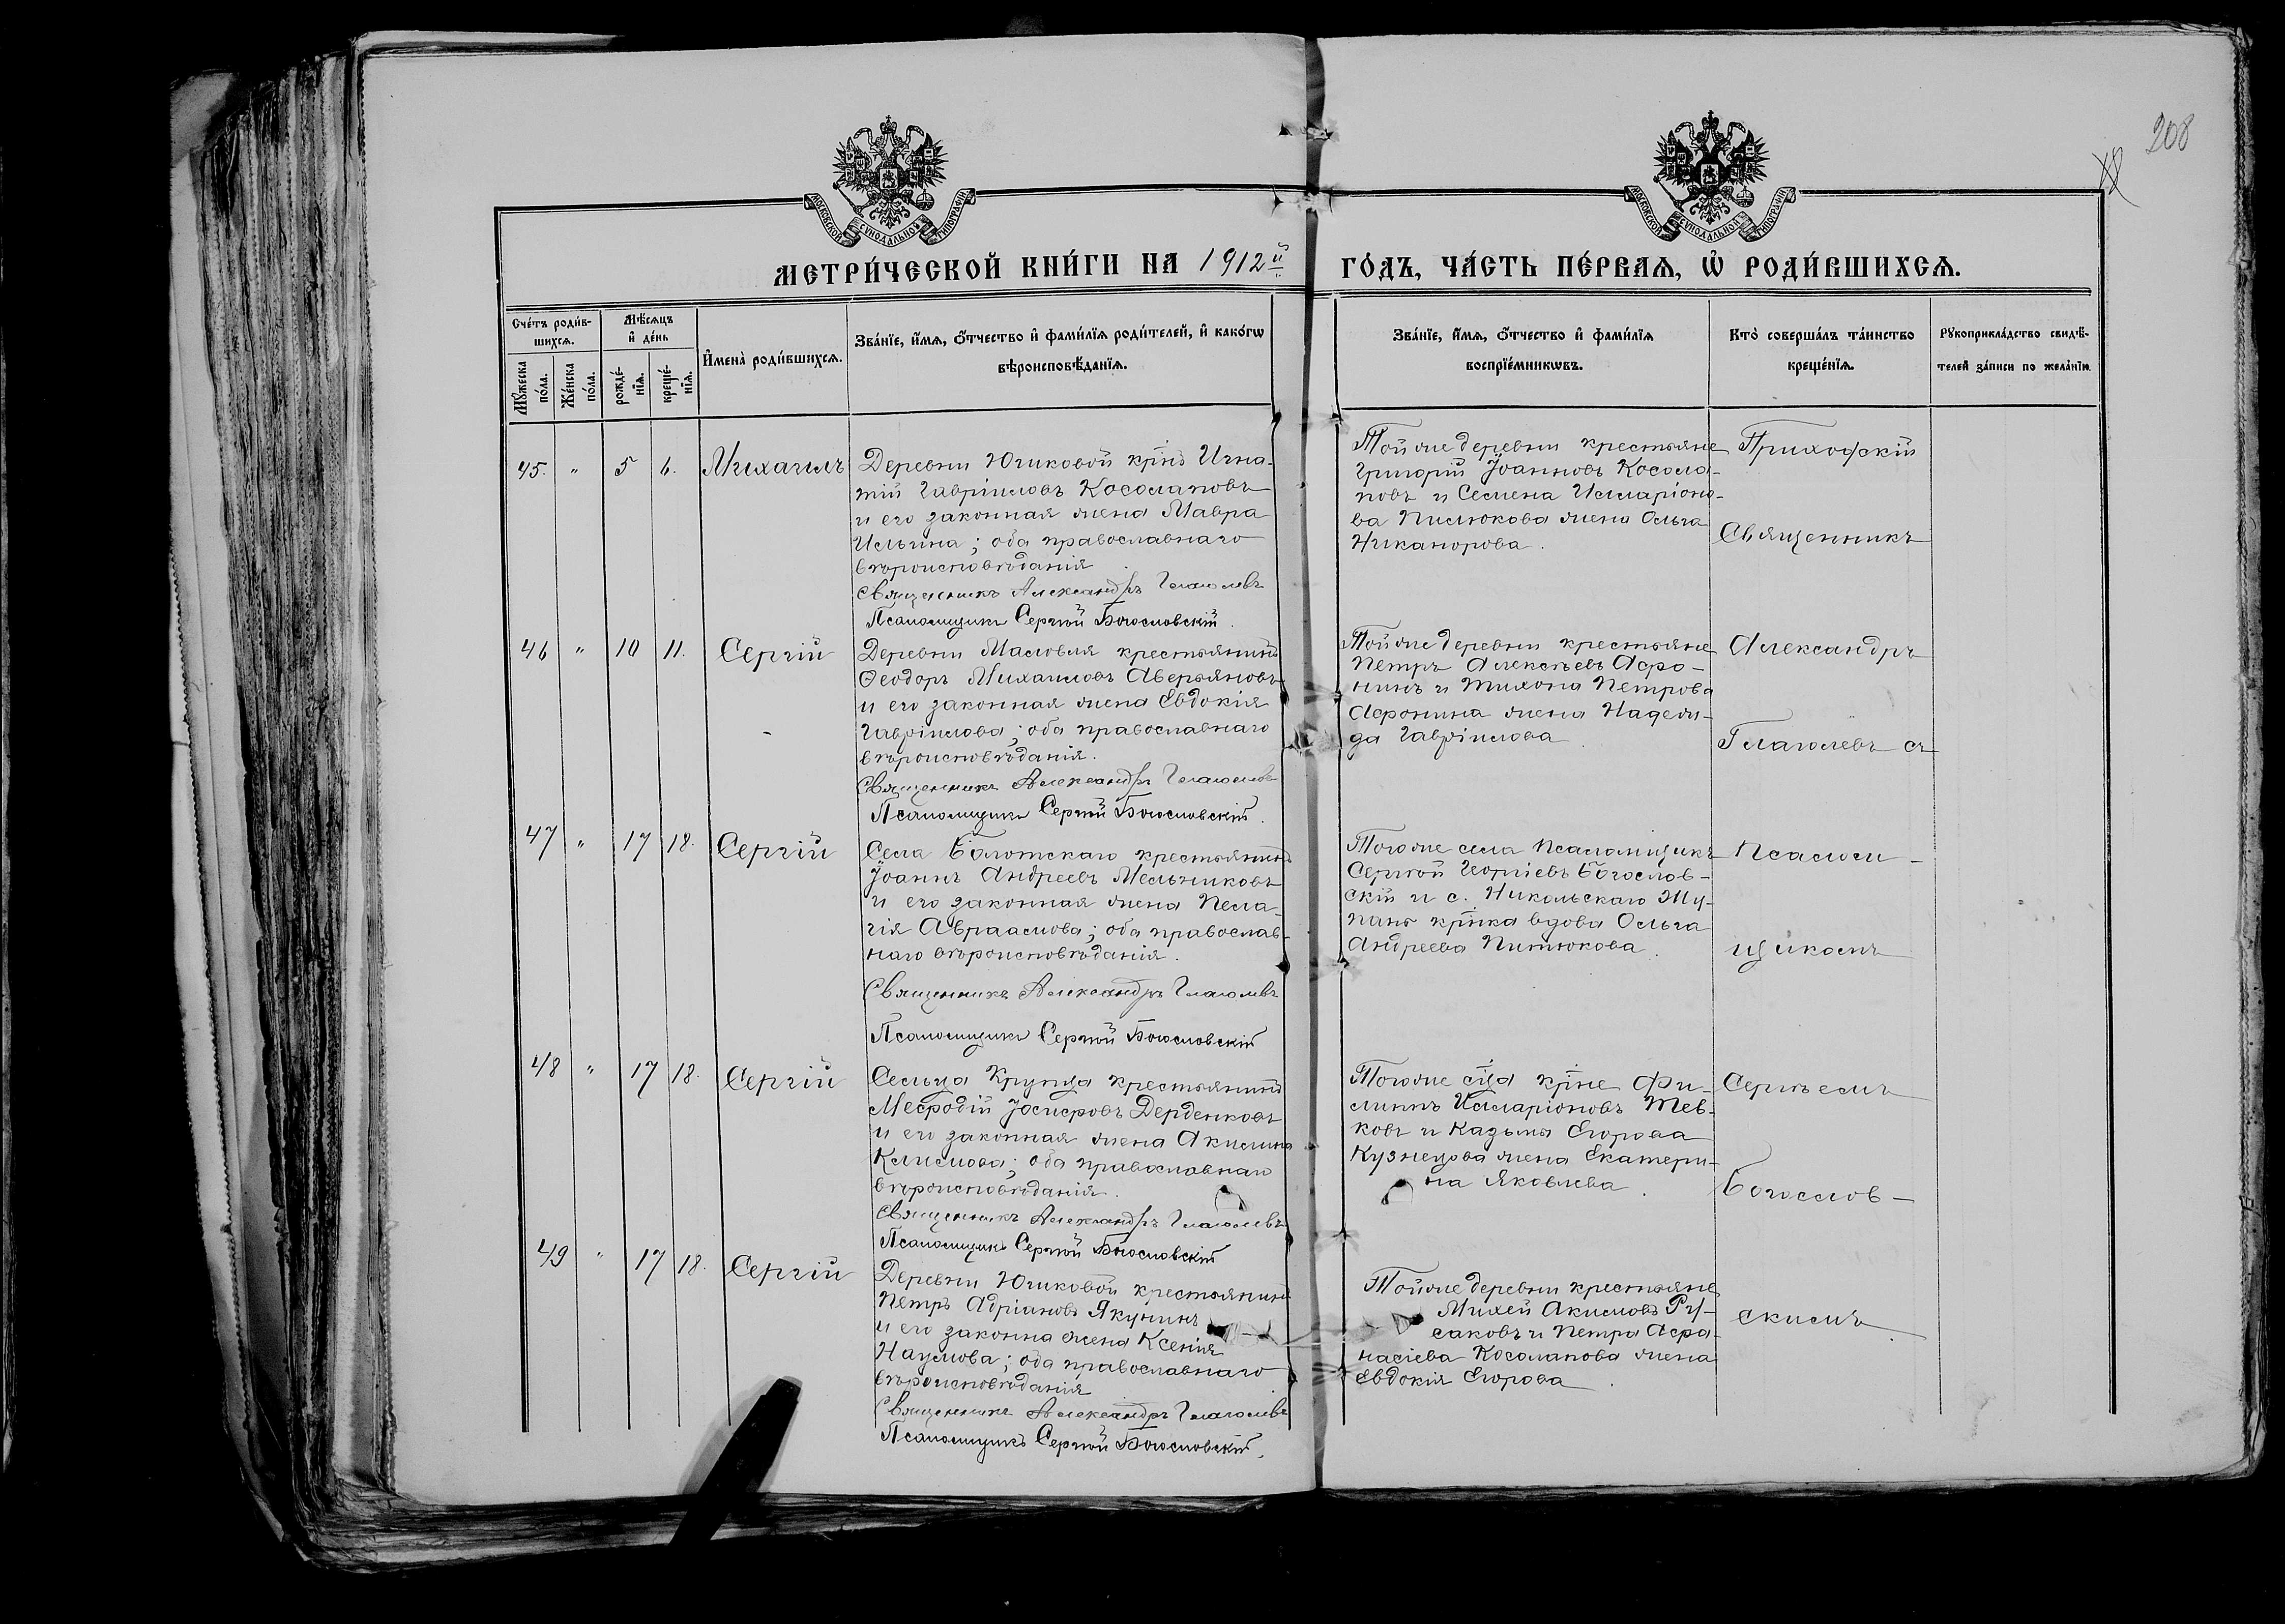 208
МОСКОВСКОЙ СѴНОДАЛЬНОЙ ТИПОГРАФІИ
МОСКОВСКОЙ СѴНОДАЛЬНОЙ ТИПОГРАФІИ
МЕТРИ́ЧЕСКОЙ КНИ́ГИ НА 1912й
ГО́ДЪ, ЧА́СТЬ ПЕ́РВАѦ, Ѡ҆ РОДИ́ВШИХСѦ.
Сче́тъ роди́в-
шихсѧ.
Мꙋжеска по́ла.
Же́нска по́ла.
Мѣ́сѧцъ
и҆ де́нь
рожде́-
нїѧ.
креще́-
нїѧ.
И҆мена̀ роди́вшихсѧ.
Зва́нїе, и҆́мѧ, ѻ҆́тчество и҆ фами́лїѧ роди́телей, и҆ како́гѡ
вѣроисповѣ́данїѧ.
Зва́нїе, и҆́мѧ, ѻ҆́тчество и҆ фами́лїѧ
воспрїе́мникѡвъ.
Кто̀ соверша́лъ та́инство
креще́нїѧ.
Рꙋкоприкла́дство свидѣ́-
телей за́писи по жела́нїю.
45. " 5 6. Михаилъ
Деревни Юшковой кр̃нъ Игна-
тій Гавріиловъ Косолаповъ
и его законная жена Мавра
Ильина; оба православнаго
вѣроисповѣданія
Священникъ Александръ Глаголевъ
Псаломщикъ Сергѣй Богословскій.
Той же деревни крестьяне
Григорій Іоанновъ Косола-
повъ и Семена Илларіоно-
ва Пилюкова жена Ольга
Никанорова.
Приходскій
Священникъ
46 " 10 11. Сергій
Деревни Масловля крестьянинъ
Ѳеодоръ Михаиловъ Аверьяновъ
и его законная жена Евдокія
Гавріилова; оба православнаго
вѣроисповѣданія.
Священникъ Александръ Глаголевъ
Псаломщикъ Сергѣй Богословскій.
Той же деревни крестьяне
Петръ Алексѣевъ Афо-
нинъ и Тихона Петрова
Афонина жена Надеж-
да Гавріилова
Александръ
Глаголевъ съ
47 " 17 18. Сергій
Села Болотскаго крестьянинъ
Іоаннъ Андреевъ Мельниковъ
и его законная жена Пела-
гія Авраамова; оба православ-
наго вѣроисповѣданія.
Священникъ Александръ Глаголевъ
Псаломщикъ Сергѣй Богословскій
Того же села псаломщикъ
Сергѣй Георгіевъ Богослов-
скій и с. Никольскаго Жу-
пань кр̃нка вдова Ольга
Андреева Питюкова.
псалом-
щикомъ
48 " 17 18. Сергій
Сельца Крутца крестьянинъ
Меѳодій Іосифовъ Дерденковъ
и его законная жена Акилина
Климова; оба православнаго
вѣроисповѣданія.
Священникъ Александръ Глаголевъ
Псаломщикъ Сергѣй Богословскій
Того же с̃ца кр̃не Фи-
липпъ Илларіоновъ Жев-
ковъ и Казьмы Егорова
Кузнецова жена Екатери-
на Яковлева.
Сергѣемъ
Богослов-
49 " 17 18. Сергій
Деревни Юшковой крестьянинъ
Петръ Адріановъ Якунинъ
и его законна жена Ксенія
Наумова; оба православнаго
вѣроисповѣданія
Священникъ Александръ Глаголевъ
Псаломщикъ Сергѣй Богословскій.
Той же деревни крестьяне
Михей Акимовъ Ру-
саковъ и Петра Афа-
насіева Косолапова жена
Евдокія Егорова.
скимъ.